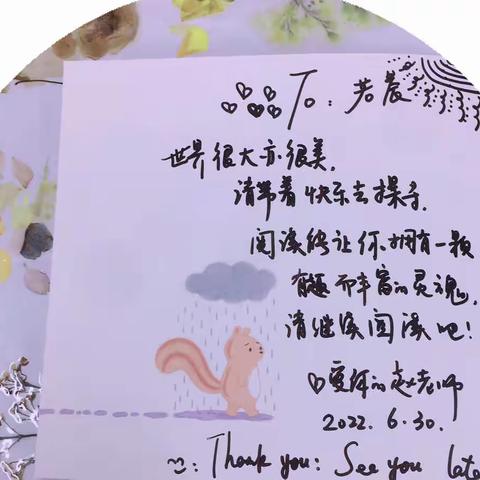 To: 若晨
世界很大亦很美,
请带着快乐去探寻.
阅读能让你拥有一颗
有趣而丰富的灵魂,
请继续阅读吧!
♡爱你的赵老师
2022.6.30.
Thank you: See you late